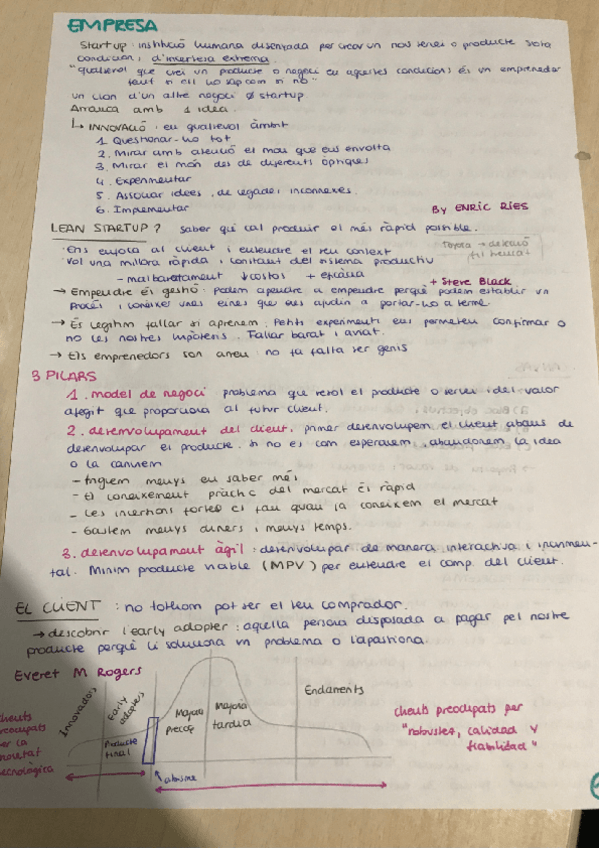 EMPRESA
Startup: institució humana dissenyada per crear un nou servei o producte sota
condicions d'incertesa extrema.
"qualsevol que crei un producte o negoci en aquestes condicions és un emprenedor
tant si ell ho sap com si no"
un clon d'un altre negoci ≠ startup
Arranca amb 1 idea.
↳ INNOVACIÓ: en qualsevol àmbit
1. Questionar-ho tot
2. Mirar amb atenció el mon que ens envolta
3. Mirar el món des de diferents òptiques
4. Experimentar
5. Associar idees, de vegades inconnexes.
6. Implementar
BY ENRIC RIES
LEAN STARTUP? saber què cal produir el més ràpid possible.
· Ens enfoca al client i entendre el seu context
Vol una millora ràpida i constant del sistema productiu
Toyota →
- malbaratament ↓costos + eficàcia
+ Steve Black
→ Empendre és gestió: podem apendre a empendre perquè podem establir un
procés i conèixer unes eines que ens ajudin a portar-ho a terme.
→ És legítim fallar si aprenem. Petits experiments ens permeten confirmar o
no les nostres hipòtesis. Fallar barat i aviat.
→ Els emprenedors son arreu: no fa falta ser genis
3 PILARS
1. model de negoci problema que resol el producte o servei i del valor
afegit que proporciona al futur client.
2. desenvolupament del client: primer desenvolupem el client abans de
desenvolupar el producte. Si no és com esperàvem, abandonem la idea
o la canviem
- Triguem menys en saber més
- El coneixement pràctic del mercat és ràpid
- Les inversions fortes es fan quan ja coneixem el mercat
- Gastem menys diners i menys temps.
3. desenvolupament àgil: desenvolupar de manera interactiva i incremen-
tal. Mínim producte viable (MPV) per entendre el comp. del client.
EL CLIENT: no tothom pot ser el teu comprador.
→ descobrir l'early adopter: aquella persona disposada a pagar pel nostre
producte perquè li soluciona un problema o l'apassiona.
Everet M Rogers
Innovadors
Early adopters
Producte final
Majoria precoç
Majoria tardia
Endarrerits
clients preocupats per la novetat tecnològica
clients preocupats per
"robustez, calidad y
fiabilidad"
abisme